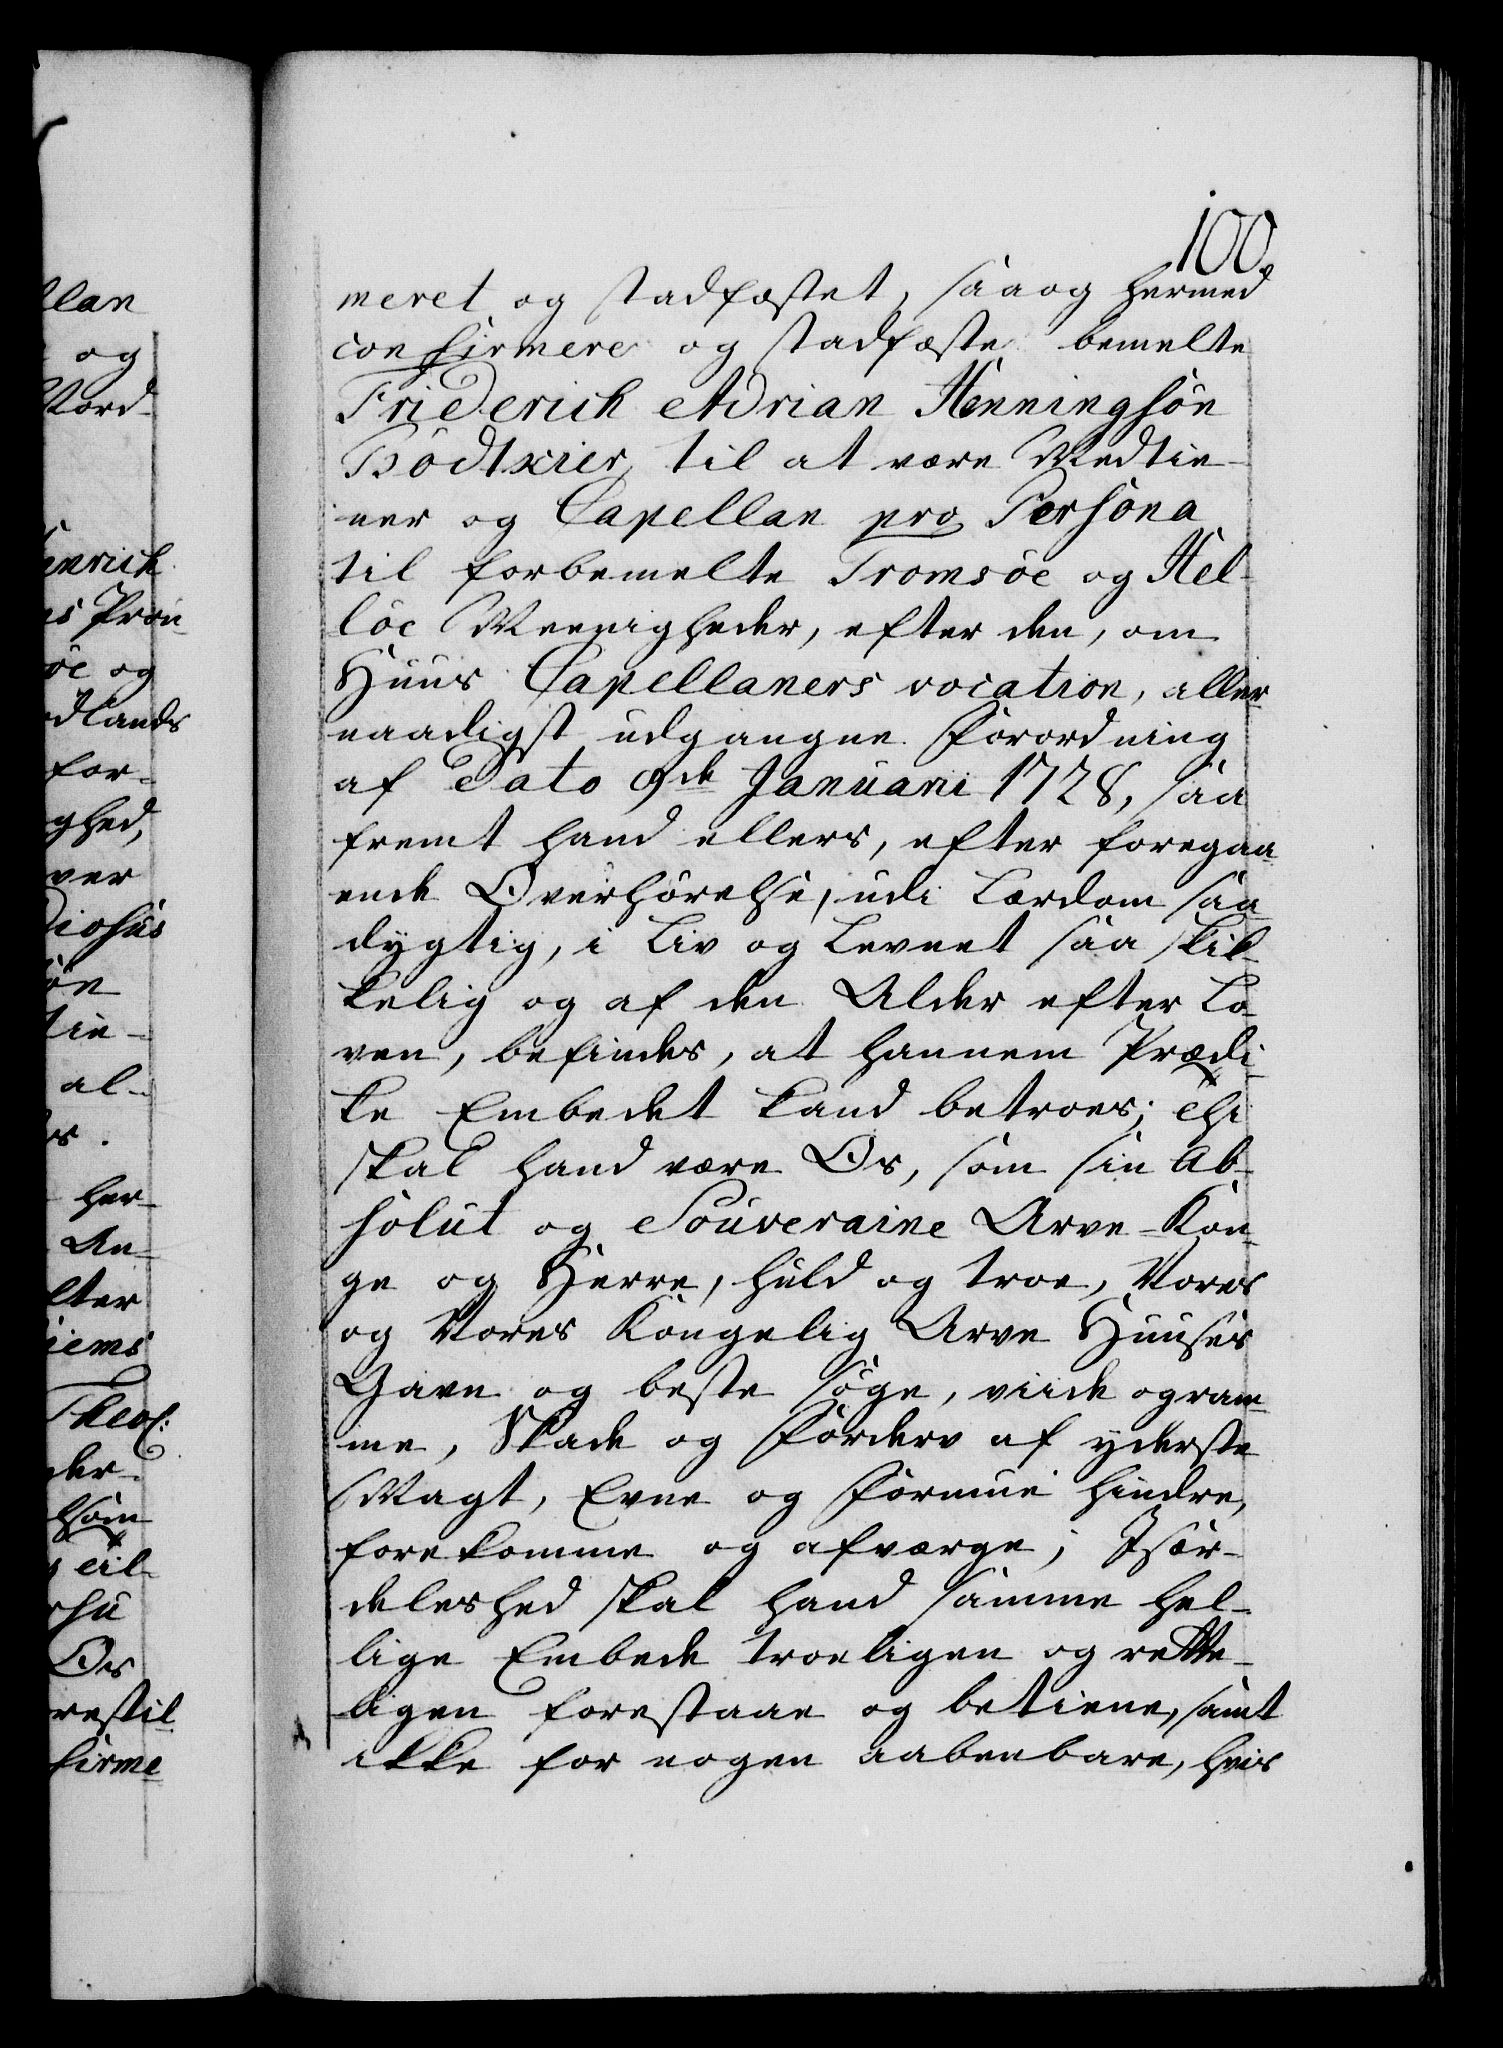 100.
meret og stadfæstet, saa og hermed
confirmere og stadfæste bemelte
Friderich Adrian Henningsön
Bödtker, til at være Medtie-
ner og Capellan pro Persona
til forbemelte Tromsöe og Hel-
löe Meenigheder, efter den, om
Huus Capellaners vocation, aller
naadigst udgangne Forordning
af Dato 9de Januarii 1728, saa
fremt hand ellers, efter foregaa
ende Överhörelse, udi Lærdom saa
dygtig, i Liv og Levnet saa skik
kelig og af den Alder efter Lo
ven, befindes, at hannem Prædi-
ke Embedet kand betroes; Thi
skal hand være Os, som sin Ab-
solut og Souveraine Arve-Kon-
ge og Herre, huld og troe, Vores
og Vores Kongelig Arve Huuses
Gavn og beste söge, viide og ram
me, Skade og Forderv af yderste
Magt, Evne og Formue hindre,
forekomme og afværge; Især-
deleshed skal hand samme hel-
lige Embede troeligen og rette-
ligen forestaae og betiene, samt
ikke for nogen aabenbare, hvis
llan
og
Nord-
enrich
öe og
dlands
for-
ghed,
ver
ön
tie-
al-
her-
An-
lter
iems
Theol:
der-
Os
restil
firme